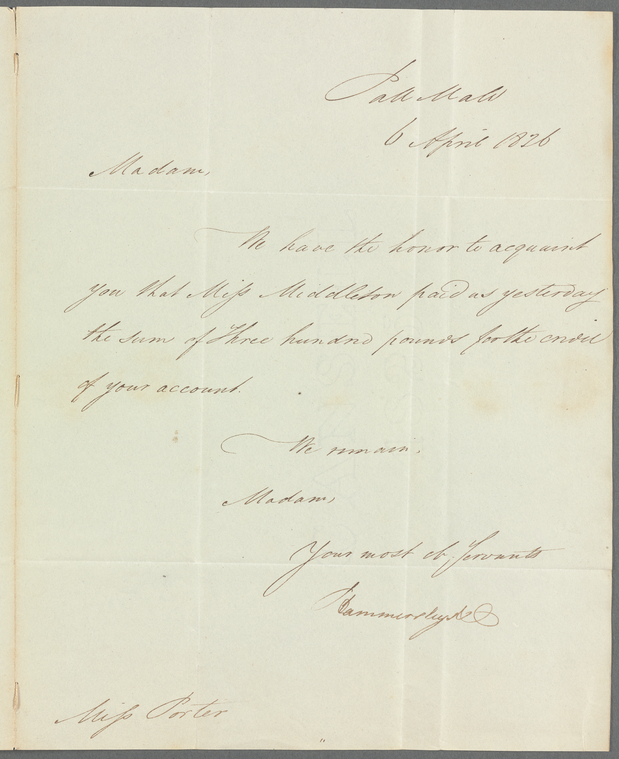 Pall Mall
6 April 1826
Madam,
We have the honor to acquaint
you that Miss Middleton paid us yesterday
the sum of Three hundred pounds for the credit
of your account.
We remain,
Madam,
Your most ob. Servants
Hammersleys & Co
Miss Porter